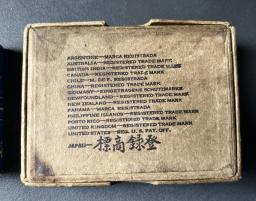 ARGENTINE—MARCA REGISTRADA
AUSTRALIA—REGISTERED TRADE MARK
BRITISH INDIA—REGISTERED TRADE MARK
CANADA—REGISTERED TRADE MARK
CHILE—M. DE F. REGISTRADA
CHINA—REGISTERED TRADE MARK
GERMANY—EINGETRAGENE SCHUTZMARKE
NEWFOUNDLAND—REGISTERED TRADE MARK
NEW ZEALAND—REGISTERED TRADE MARK
PANAMA—MARCA REGISTRADA
PHILIPPINE ISLANDS—REGISTERED TRADE MARK
PORTO RICO—REGISTERED TRADE MARK
UNITED KINGDOM—REGISTERED TRADE MARK
UNITED STATES—REG. U. S. PAT. OFF.
JAPAN—標商録登